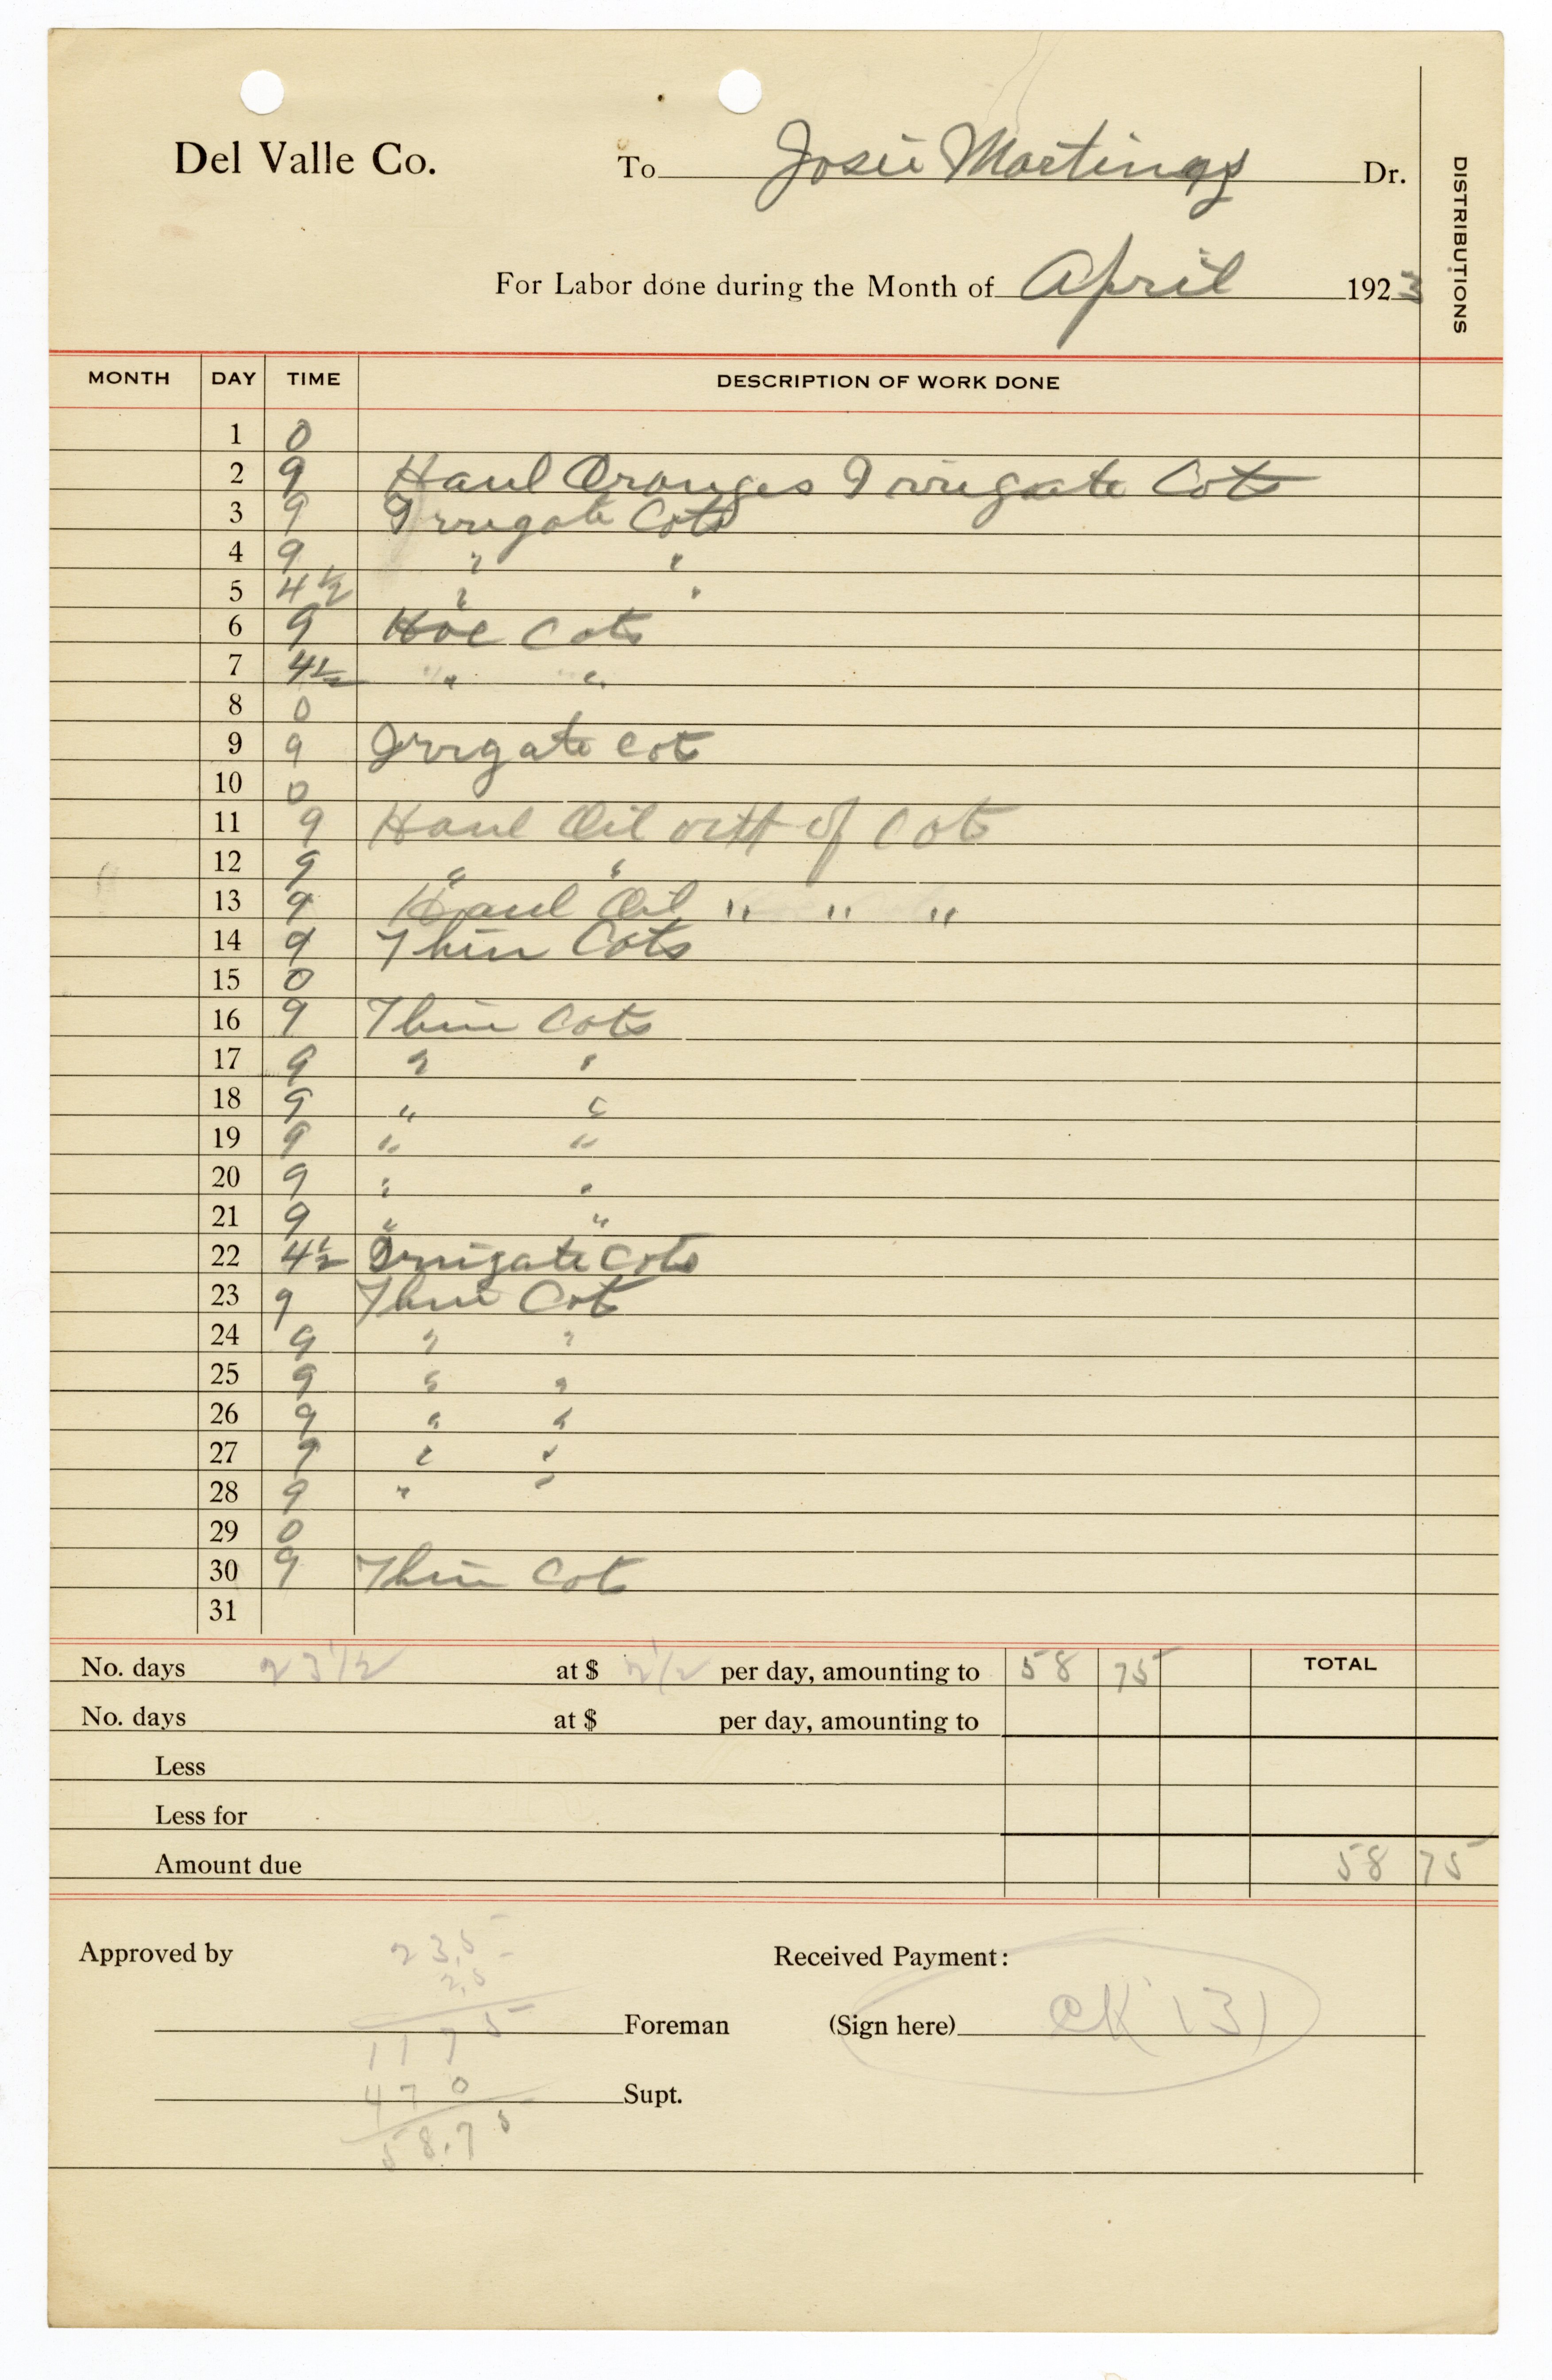 Del Valle Co. To Josie Martinez Dr.
DISTRIBUTIONS
For Labor done during the Month of April 1923
MONTH DAY TIME DESCRIPTION OF WORK DONE
1 0
2 9 Haul Oranges Irrigate Cots
3 9 Irrigate Cots
4 9 " "
5 4 1/2 " "
6 9 Hoe Cots
7 4 1/2 " "
8 0
9 9 Irrigate Cots
10 0
11 9 Haul Oil out of Cots
12 9 " "
13 9 Haul Oil " " "
14 9 Thin Cots
15 0
16 9 Thin Cots
17 9 " "
18 9 " "
19 9 " "
20 9 " "
21 9 " "
22 4 1/2 Irrigate Cots
23 9 Thin Cot
24 9 " "
25 9 " "
26 9 " "
27 9 " "
28 9 " "
29 0
30 9 Thin Cot
31
No. days 23 1/2 at $ 2 1/2 per day, amounting to 58 75 TOTAL
No. days at $ per day, amounting to
Less
Less for
Amount due 58 75
Approved by 23.5 Received Payment:
2.5
Foreman (Sign here) CK 131
1175
470 Supt.
58.75